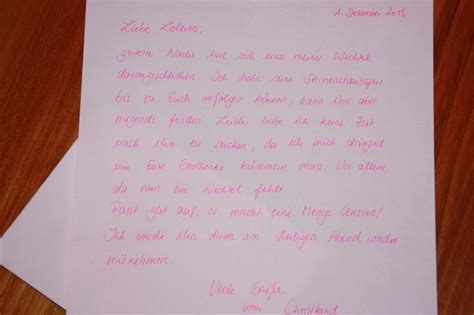 1. Dezember 2015
Liebe Lotties,
gestern Nacht hat sich einer meiner Wichtel
davongeschlichen. Ich habe seine Sternenstaubspur
bis zu Euch verfolgen können, kann ihn aber
nirgends finden. Leider habe ich keine Zeit
nach ihm zu suchen, da ich mich dringend
um Eure Geschenke kümmern muss. Vor allem,
da nun ein Wichtel fehlt.
Passt gut auf, er macht eine Menge Unsinn!
Ich werde ihn dann am Heiligen Abend wieder
mitnehmen.
Viele Grüße
vom Christkind